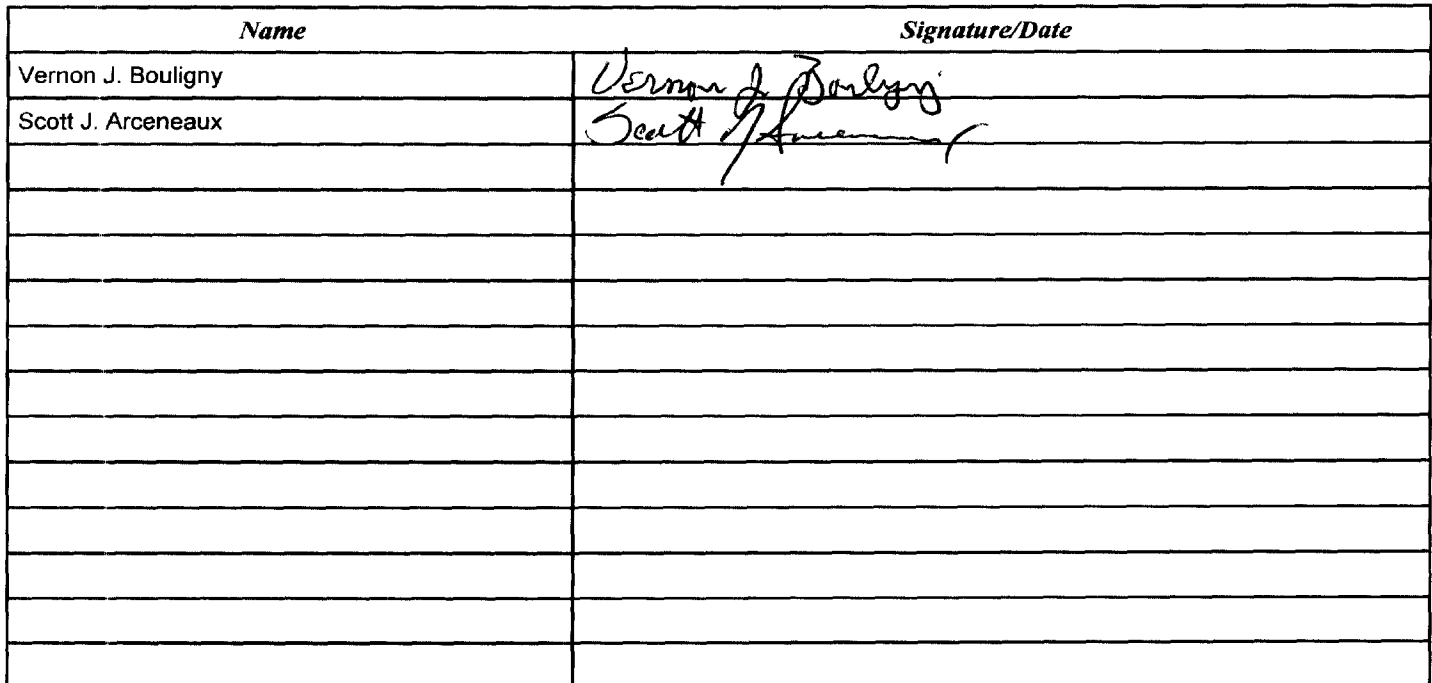 Name Signature/Date
Vernon J. Bouligny Vernon J. Bouligny
Scott J. Arceneaux Scott J Arceneaux